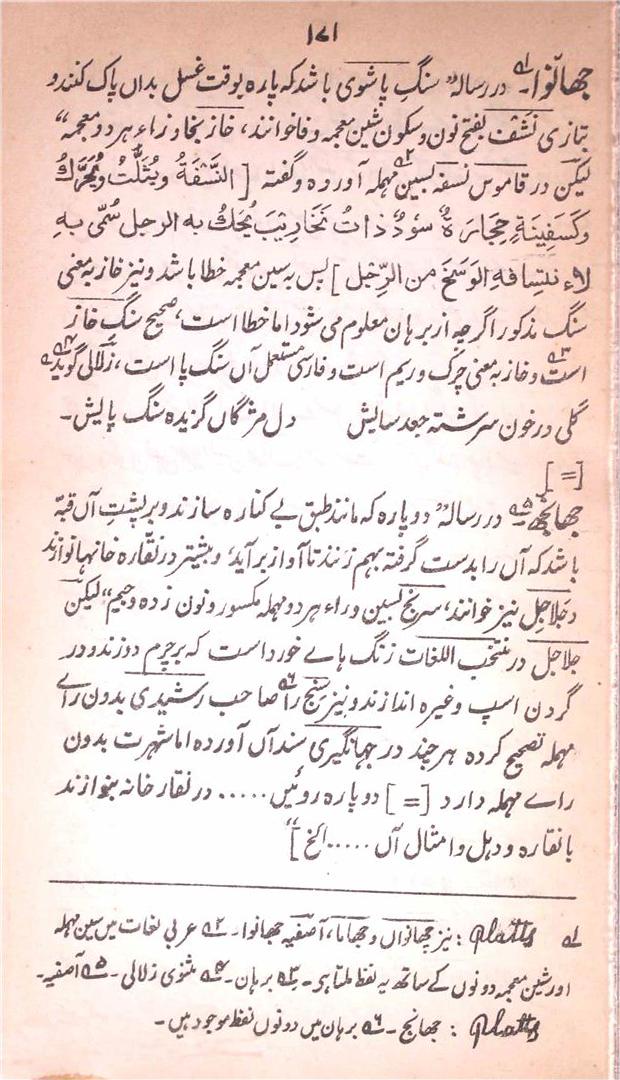 ۱۷۱
جھانوا۔ در رسالہ ”سنگِ پاشوی باشد که پاره بوقت غسل بداں پاک کنند و
بتازی نَشَف بفتح نون و سکون شین معجمه و فا خوانند، خاز بخا و زاء هر دو معجمه“
لیکن در قاموس نسفه بسین مهمله آورده و گفته [ النَّسْفَةُ ویُثَلَّثُ ویُحَرَّكُ
وکَسَفِینَةٍ حِجَارَةٌ سُودٌ ذاتُ نَخَارِیْبَ یُحَكُّ به الرجل سُمِّی بهِ
لاِنتِسافهِ الوَسَخَ من الرِّجْلِ ] پس به سین معجمه خطا باشد و نیز خاز به معنی
سنگ مذکور اگرچه از برہان معلوم می شود اما خطا است، صحیح سنگِ خاز
است و خاز به معنی چرک و ریم است و فارسی مستعمل آں سنگ پا است، زلالی گوید
گلی در خون سرشته جعد سالیش دل مژگاں گزیده سنگ پالیش۔
[=]
جھانجھ۔ در رسالہ ”دو پاره که مانند طبق بے کناره سازند و بر پشتِ آں قبه
باشد که آں را بدست گرفته بهم زنند تا آواز برآید، و بیشتر در نقاره خانہا نوازند
و جَلاجِل نیز خوانند، سِرِنج بسین و راء هر دو مهمله مکسور و نون زده و جیم“ لیکن
جلاجل در منتخب اللغات زنگ ہاے خورد است که بر چرم دوزند و در
گردن اسپ و غیره اندازند و نیز سنج را صاحب رشیدی بدون راے
مهمله تصحیح کرده هر چند در جہانگیری سند آں آورده اما شہرت بدون
راے مهمله دارد [=] دو پاره روئیں ..... در نقارخانه بنوازند
با نقاره و دہل و امثال آں ..... الخ ]“
۱؎ Platts : نیز جھانواں و جھاما، آصفیہ جھانوا۔ ۲؎ عربی لغات میں سین مہملہ
اور شین معجمہ دونوں کے ساتھ یہ لفظ ملتا ہے۔ ۳؎ برہان۔ ۴؎ مثنوی زلالی۔ ۵؎ آصفیہ۔
Platts : جھانج۔ ۶؎ برہان میں دونوں لفظ موجود ہیں۔